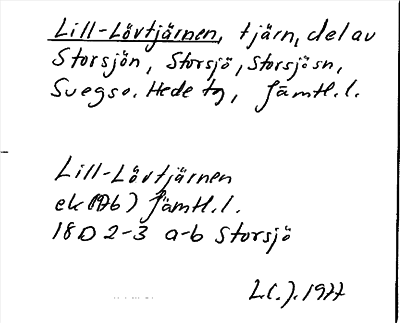 Lill-Lövtjärnen, tjärn, del av
Storsjön, Storsjö, Storsjö sn,
Svegs o. Hede tg, Jämtl. l.
Lill-Lövtjärnen
ek (17Db) Jämtl. l.
18D 2-3 a-b Storsjö
L.C.J. 1977